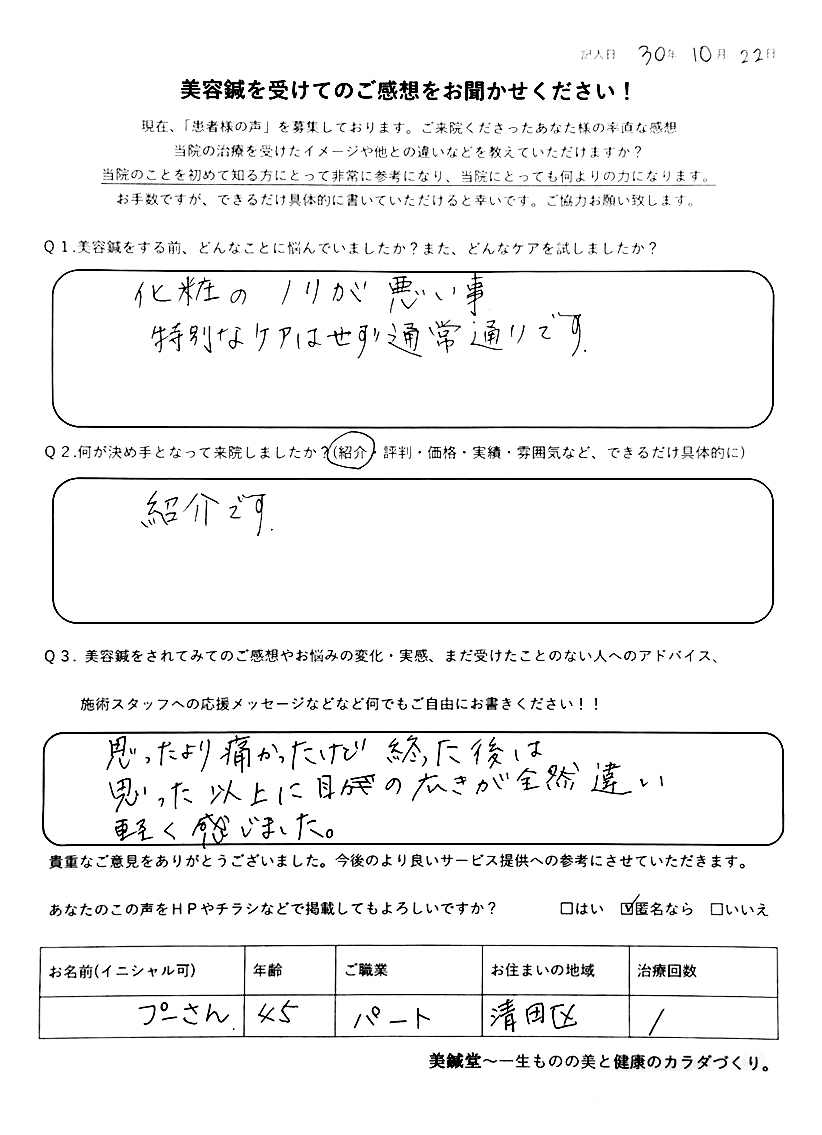 記入日 30年 10月 22日
美容鍼を受けてのご感想をお聞かせください！
現在、「患者様の声」を募集しております。ご来院くださったあなた様の率直な感想
当院の治療を受けたイメージや他との違いなどを教えていただけますか？
当院のことを初めて知る方にとって非常に参考になり、当院にとっても何よりの力になります。
お手数ですが、できるだけ具体的に書いていただけると幸いです。ご協力お願い致します。
Ｑ１.美容鍼をする前、どんなことに悩んでいましたか？また、どんなケアを試しましたか？
化粧の ノリが 悪い事
特別なケアはせず通常通りです.
Ｑ２.何が決め手となって来院しましたか？(紹介・評判・価格・実績・雰囲気など、できるだけ具体的に)
紹介です.
Ｑ３. 美容鍼をされてみてのご感想やお悩みの変化・実感、まだ受けたことのない人へのアドバイス、
施術スタッフへの応援メッセージなどなど何でもご自由にお書きください！！
思ったより痛かったけど 終った後は
思った以上に目の大きさが全然違い
軽く感じました。
貴重なご意見をありがとうございました。今後のより良いサービス提供への参考にさせていただきます。
あなたのこの声をＨＰやチラシなどで掲載してもよろしいですか？ □はい ☑匿名なら □いいえ
お名前(イニシャル可) 年齢 ご職業 お住まいの地域 治療回数
プーさん. 45 パート 清田区 1
美鍼堂～一生ものの美と健康のカラダづくり。